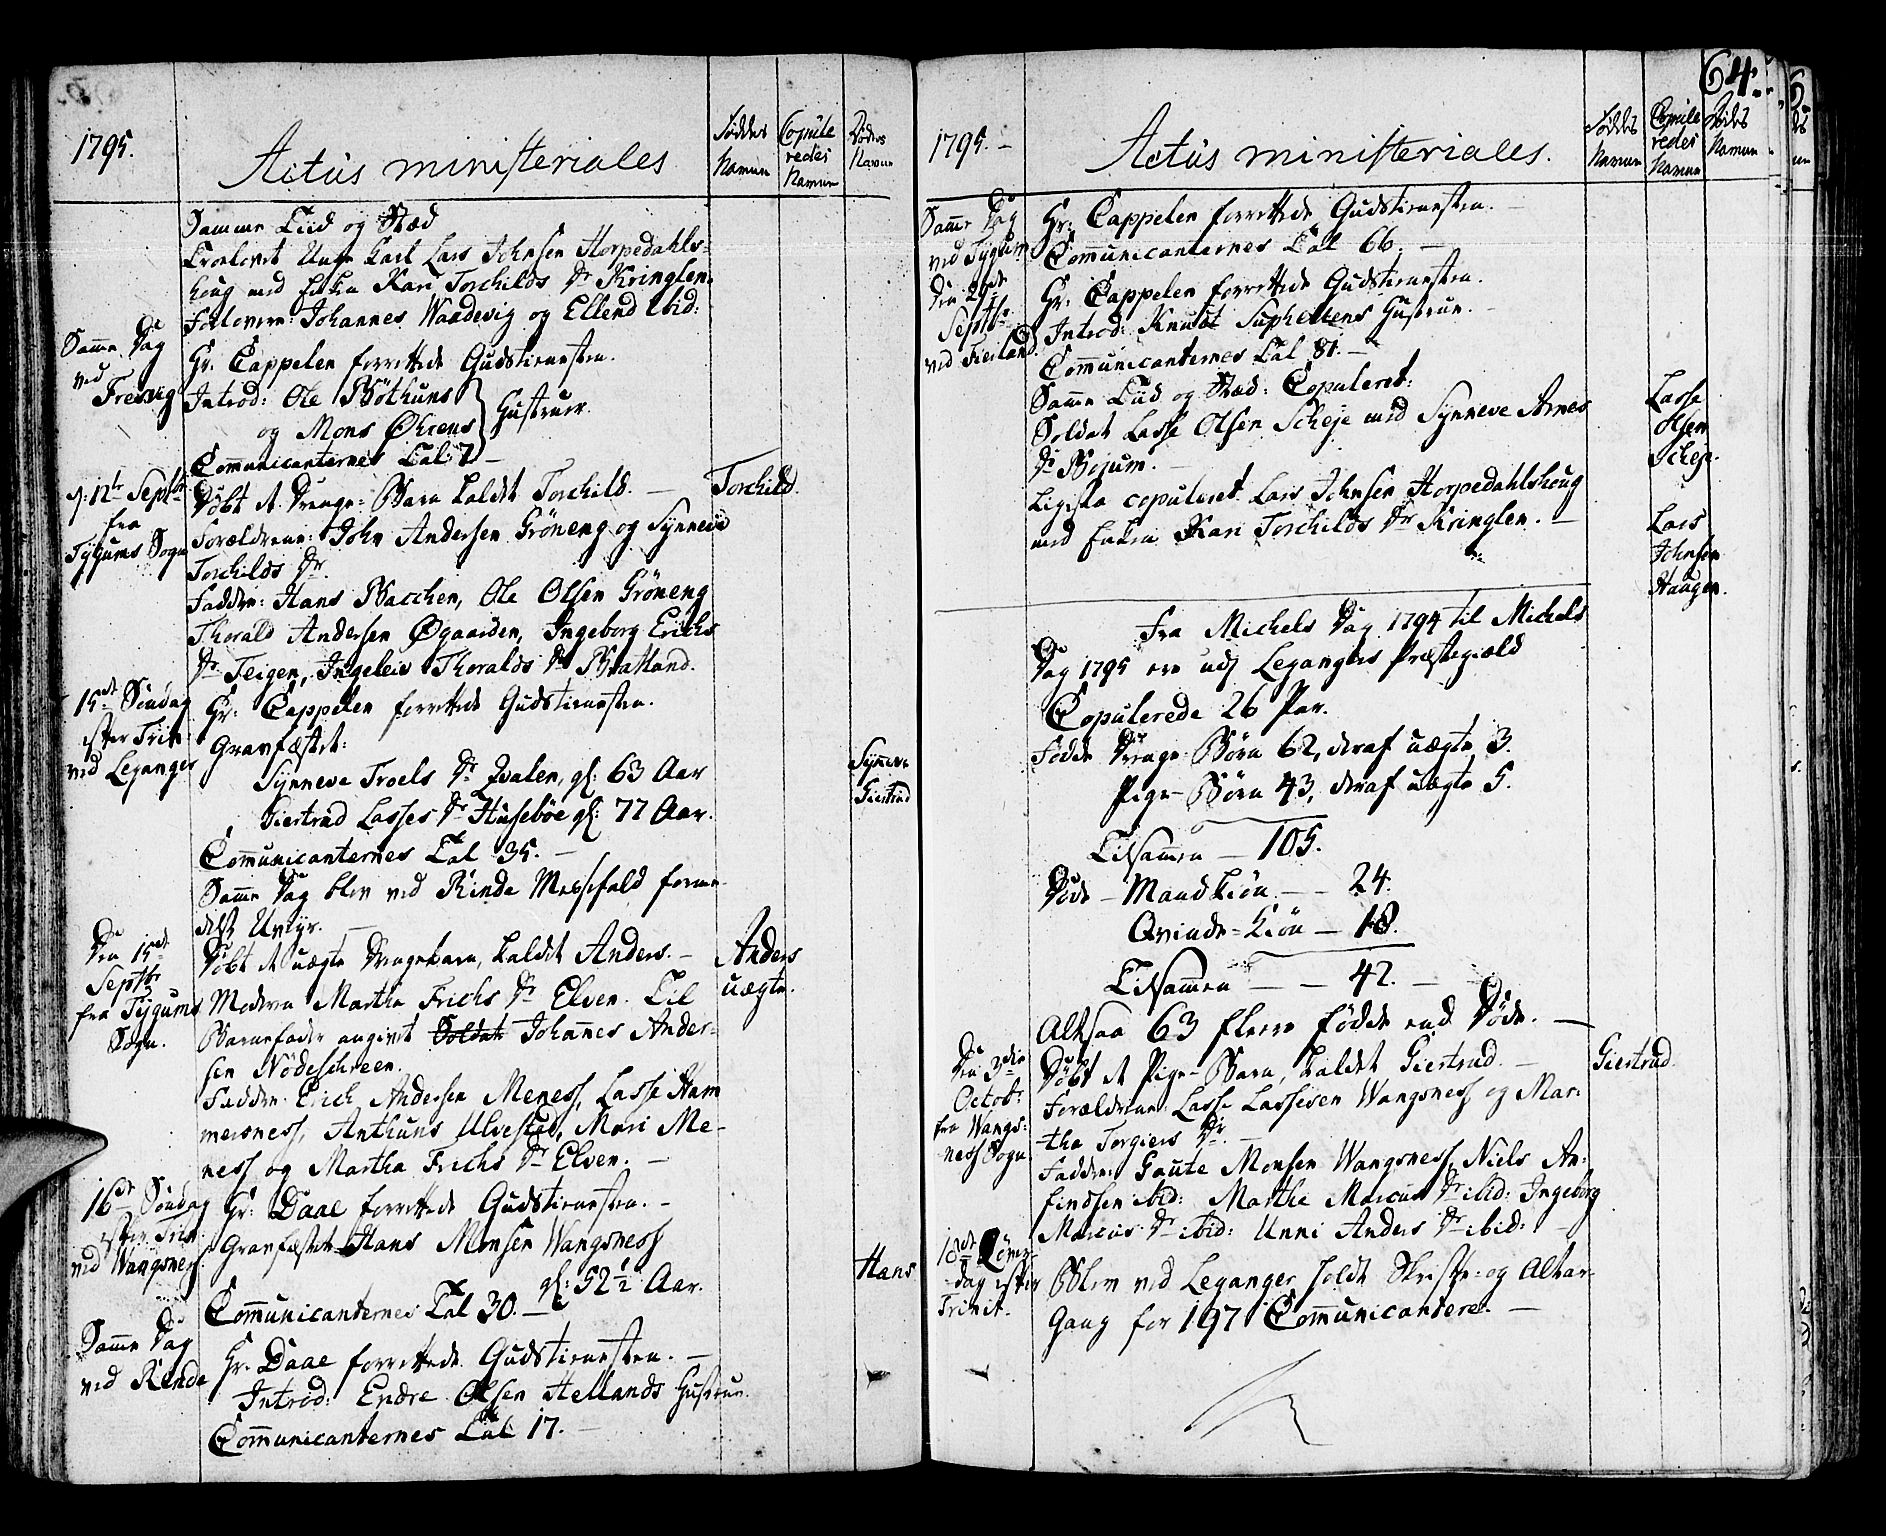 1795.
Actus ministeriales
Føddes Navne
Copule redes Navne
Dødes Navne
Samme Tiid og Stæd
Trolovet Unge Karl Lars Johnsen Horpedahls-
houg med Enken Kari Torchilds Dr Kringlen.
Forlovere: Johannes Waadevig og Ellend ibid:
Samme Dag
ved
Fresvig
Hr: Cappelen forrettede Gudstienesten.
Introd: Ole Böthuns
og Mons Øhrens
Hustruer.
Communicanternes Tal 7 -
d: 12te Septbr
fra
Tygums Sogn
Døbt et Drenge-Barn kaldt Torchild. -
Torchild.
Forældrene: John Andersen Gröneng og Synneve
Torchilds Dr.
Faddere: Hans Bacchen, Ole Olsen Gröneng
Thorald Andersen Øgaarden, Ingeborg Erichs
Dr Teigen, Ingeleiv Thoralds Dr Bratland.
15de Søndag
efter Trin:
ved Leganger
Hr: Cappelen forrettede Gudstienesten.
Gravfæstet:
Synneve Troels Dr Qvalen, gl: 63 Aar
Synneve
Giertrud Lasses Dr Huseböe gl: 77 Aar.
Giertrud
Communicanternes Tal 35. -
Samme Dag blev ved Rinde Messefald forme-
delst Uveyr.
Den 15de
Septbr
fra Tygums
Sogn.
Døbt et uægte Drengebarn, kaldet Anders. -
Anders
uægte.
Moderen Martha Frichs Dr Elven. Til
Barnefader angivet Soldat Johannes Ander-
sen Nödeschreen.
Faddere Erich Andersen Meness, Lasse Ham
mersness, Anthuns Ulvestad, Mari Me-
ness og Martha Frichs Dr Elven. -
16de Søndag
efter Trin:
ved Wangsness
Hr: Daae forrettede Gudstienesten. -
Gravfæstet Hans Monsen Wangsness
gl: 52 1/2 Aar.
Hans
Communicanternes Tal 30. -
Samme Dag
ved Rinde
Hr. Daae forrettede Gudstienesten. -
Introd: Endre Olsen Hellands Hustrue.
Communicanternes Tal 17. -
64.
1795. -
Actus ministeriales.
Føddes Navne
Copule redes Navne
Dødes Navne
Samme Dag
ved Tygum
Hr: Cappelen forrettede Gudstienesten. -
Communicanternes Tal 66. -
Den 29de
Septbr
ved Fierland.
Hr: Cappelen forrettede Gudstienesten.
Introd: Knudt Suphellens Hustrue. -
Communicanternes Tal 81. -
Samme Tiid og Stæd: Copuleret:
Soldat Lasse Olsen Scheje med Synneve Arnes
Dr Bojum. -
Lasse
Olsen
Scheje.
Ligesaa copuleret Lars Johnsen Horpedahlshoug
med Enken Kari Torchilds Dr Kringlen. -
Lars
Johnsen
Haugen.
Fra Michels Dag 1794 til Michels
Dag 1795 ere udj Legangers Præstegiæld
Copulerede 26 Par.
Fødde Drenge-Børn 62, deraf uægte 3.
Pige-Børn 43, deraf uægte 5.
Tilsammen - 105.
Døde - Mandkiön - - 24.
Qvinde-Kiön - 18.
Tilsammen - - 42. -
Altsaa 63 flere fødde end Døde. -
Den 3die
Octob:
fra Wangs-
ness Sogn
Døbt et Pige-Barn, kaldet Giertrud. -
Giertrud.
Forældrene: Lasse Lassesen Wangsness og Mar-
tha Torgiers Dr. -
Faddere: Gaute Monsen Wangsness, Niels An-
findsen ibid: Marthe Marcus Dr ibid: Ingeborg
Marcus Dr ibid: Unni Anders Dr ibid: -
18de Løver-
dag efter
Trinit.
Blev ved Leganger holdt Skrifte- og Altar-
Gang for 197 Communicantere. -